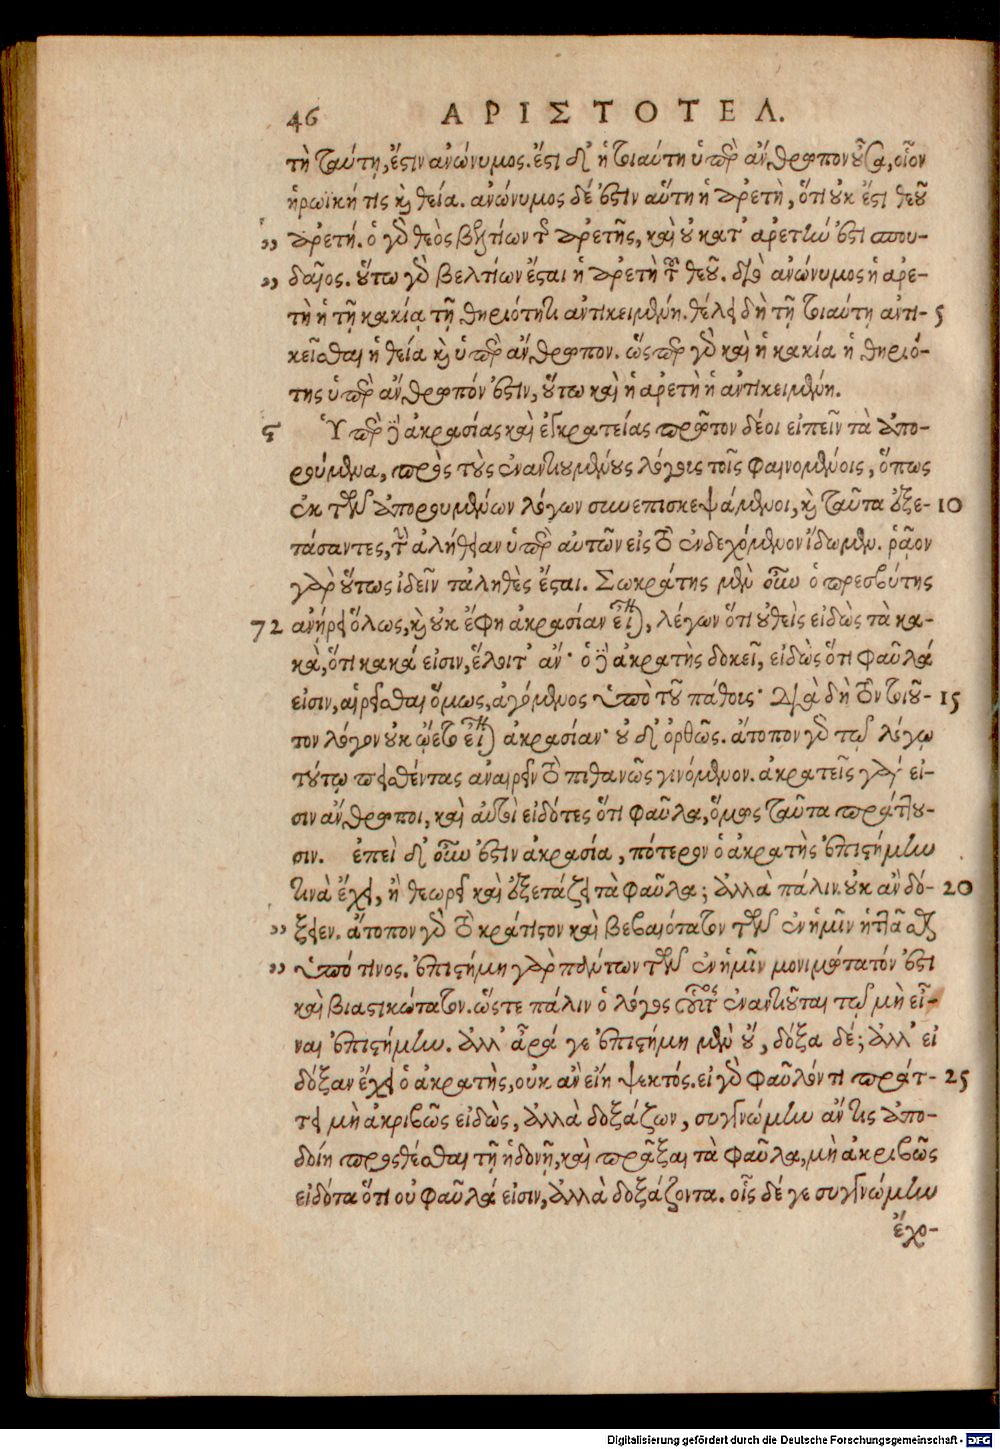 46 ΑΡΙΣΤΟΤΕΛ.
τὴ ταύτῃ, ἔστιν ἀνώνυμος. ἔστι δ' ἡ τοιαύτη ὑπὲρ ἄνθρωπον οὖσα, οἷον
ἡρωϊκή τις καὶ θεία. ἀνώνυμος δέ ἐστιν αὕτη ἡ ἀρετὴ, ὅτι οὐκ ἔστι θεοῦ
,, ἀρετή. ὁ γὰρ θεὸς βελτίων τῆς ἀρετῆς, καὶ οὐ κατ' ἀρετὴν ἐστι σπου-
,, δαῖος. οὕτω γὰρ βελτίων ἔσται ἡ ἀρετὴ τοῦ θεοῦ. διὸ ἀνώνυμος ἡ ἀρε-
τὴ ἡ τῇ κακίᾳ τῇ θηριότητι ἀντικειμένη. θέλει δὴ τῇ τοιαύτῃ ἀντι- 5
κεῖσθαι ἡ θεία καὶ ὑπὲρ ἄνθρωπον. ὥσπερ γὰρ καὶ ἡ κακία ἡ θηριό-
της ὑπὲρ ἄνθρωπόν ἐστιν, οὕτω καὶ ἡ ἀρετὴ ἡ ἀντικειμένη.
ϛ Ὑπὲρ δὲ ἀκρασίας καὶ ἐγκρατείας πρῶτον δέοι εἰπεῖν τὰ ἀπο-
ρούμενα, πρὸς τοὺς ἐναντιουμένους λόγους τοῖς φαινομένοις, ὅπως
ἐκ τῶν ἀπορουμένων λόγων συνεπισκεψάμενοι, καὶ ταῦτα ἐξε- 10
τάσαντες, τὴν ἀλήθειαν ὑπὲρ αὐτῶν εἰς τὸ ἐνδεχόμενον ἴδωμεν. ῥᾷον
γὰρ οὕτως ἰδεῖν τἀληθὲς ἔσται. Σωκράτης μὲν οὖν ὁ πρεσβύτης
72 ἀνῄρει ὅλως, καὶ οὐκ ἔφη ἀκρασίαν εἶναι, λέγων ὅτι οὐθεὶς εἰδὼς τὰ κα-
κὰ, ὅτι κακά εἰσιν, ἕλοιτ' ἄν· ὁ δὲ ἀκρατὴς δοκεῖ, εἰδὼς ὅτι φαῦλά
εἰσιν, αἱρεῖσθαι ὅμως, ἀγόμενος ὑπὸ τοῦ πάθους· διὰ δὴ τὸν τοιοῦ- 15
τον λόγον οὐκ ᾤετο εἶναι ἀκρασίαν· οὐ δ' ὀρθῶς. ἄτοπον γὰρ τῷ λόγῳ
τούτῳ πεισθέντας ἀναιρεῖν τὸ πιθανῶς γινόμενον. ἀκρατεῖς γάρ εἰ-
σιν ἄνθρωποι, καὶ αὐτοὶ εἰδότες ὅτι φαῦλα, ὅμως ταῦτα πράττου-
σιν. ἐπεὶ δ' οὖν ἐστιν ἀκρασία, πότερον ὁ ἀκρατὴς ἐπιστήμην
τινὰ ἔχει, ἣ θεωρεῖ καὶ ἐξετάζει τὰ φαῦλα; ἀλλὰ πάλιν. οὐκ ἂν δό- 20
,, ξειεν. ἄτοπον γὰρ τὸ κράτιστον καὶ βεβαιότατον τῶν ἐν ἡμῖν ἡττᾶσθαι
,, ὑπό τινος. ἐπιστήμη γὰρ πάντων τῶν ἐν ἡμῖν μονιμώτατόν ἐστι
καὶ βιαστικώτατον. ὥστε πάλιν ὁ λόγος οὗτος ἐναντιοῦται τῷ μὴ εἶ-
ναι ἐπιστήμην. ἀλλ' ἆρά γε ἐπιστήμη μὲν οὔ, δόξα δέ; ἀλλ' εἰ
δόξαν ἔχει ὁ ἀκρατὴς, οὐκ ἂν εἴη ψεκτός. εἰ γὰρ φαῦλόν τι πράτ- 25
τει μὴ ἀκριβῶς εἰδὼς, ἀλλὰ δοξάζων, συγγνώμην ἄν τις ἀπο-
δοίη προσθέσθαι τῇ ἡδονῇ, καὶ πρᾶξαι τὰ φαῦλα, μὴ ἀκριβῶς
εἰδότα ὅτι οὐ φαῦλά εἰσιν, ἀλλὰ δοξάζοντα. οἷς δέ γε συγγνώμην
ἔχο-
Digitalisierung gefördert durch die Deutsche Forschungsgemeinschaft - DFG